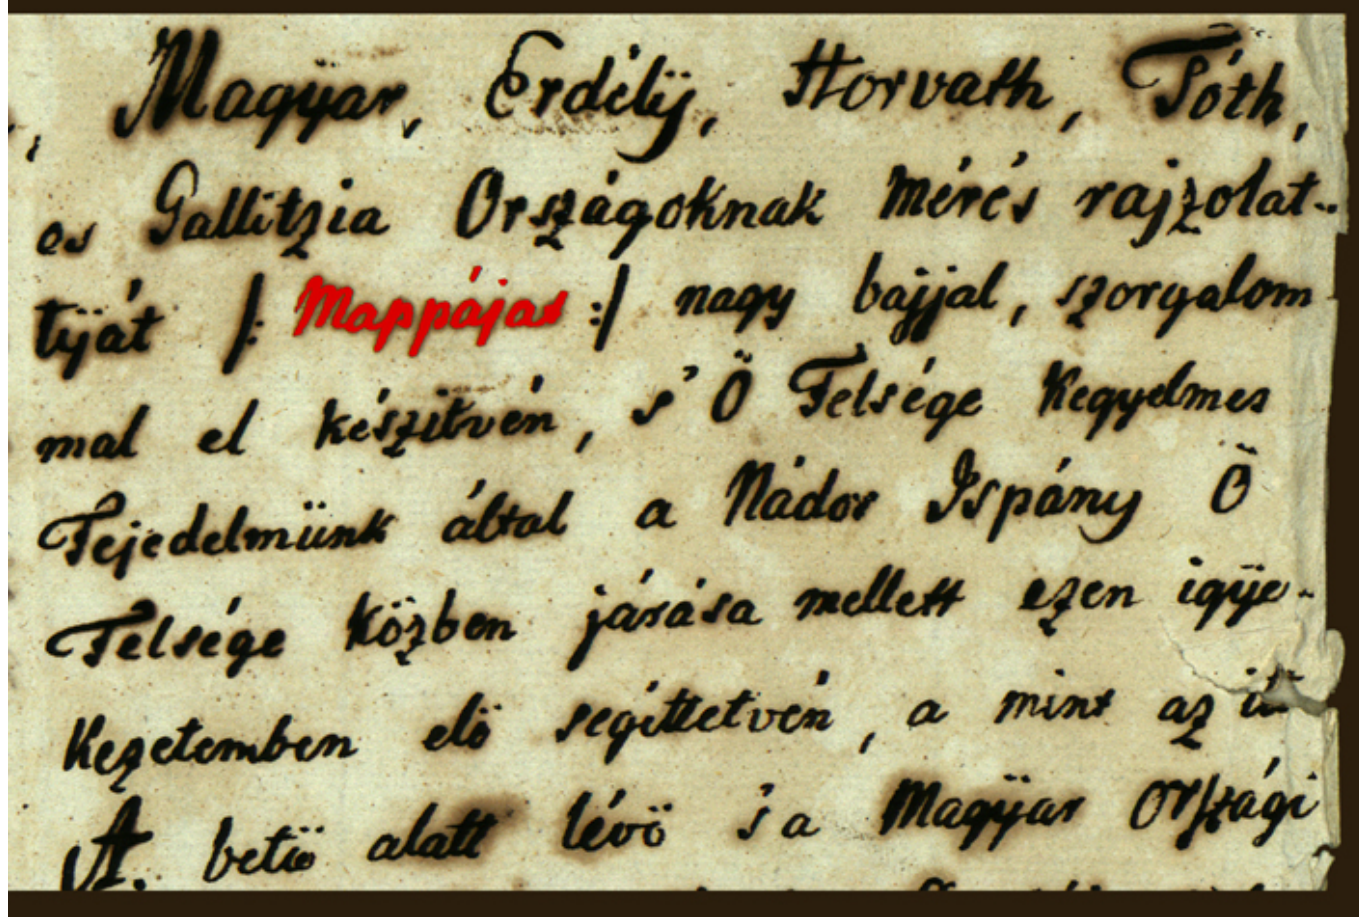 Magÿar, Erdélÿ, Horvath, Tóth,
es Gallitzia Országoknak mérés rajzolat-
tÿát /: Mappáját :/ nagy bajjal, szorgalom
mal el készitvén, s' Ö Felsége Kegyelmes
Fejedelmünk által a Nádor Ispány Ö
Felsége közben járása mellett ezen igÿe-
kezetemben elö segittetvén, a mint az itt
A. betü alatt lévö 's a Magÿar Országi